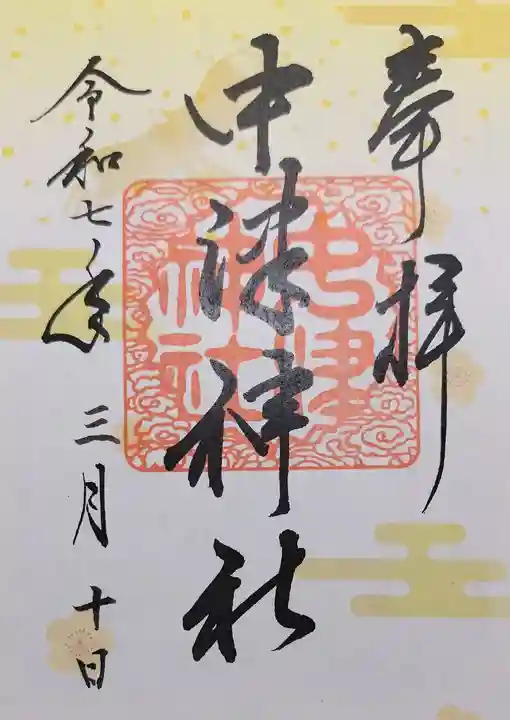 奉拝
中津神社
令和七年 三月 十日
神社